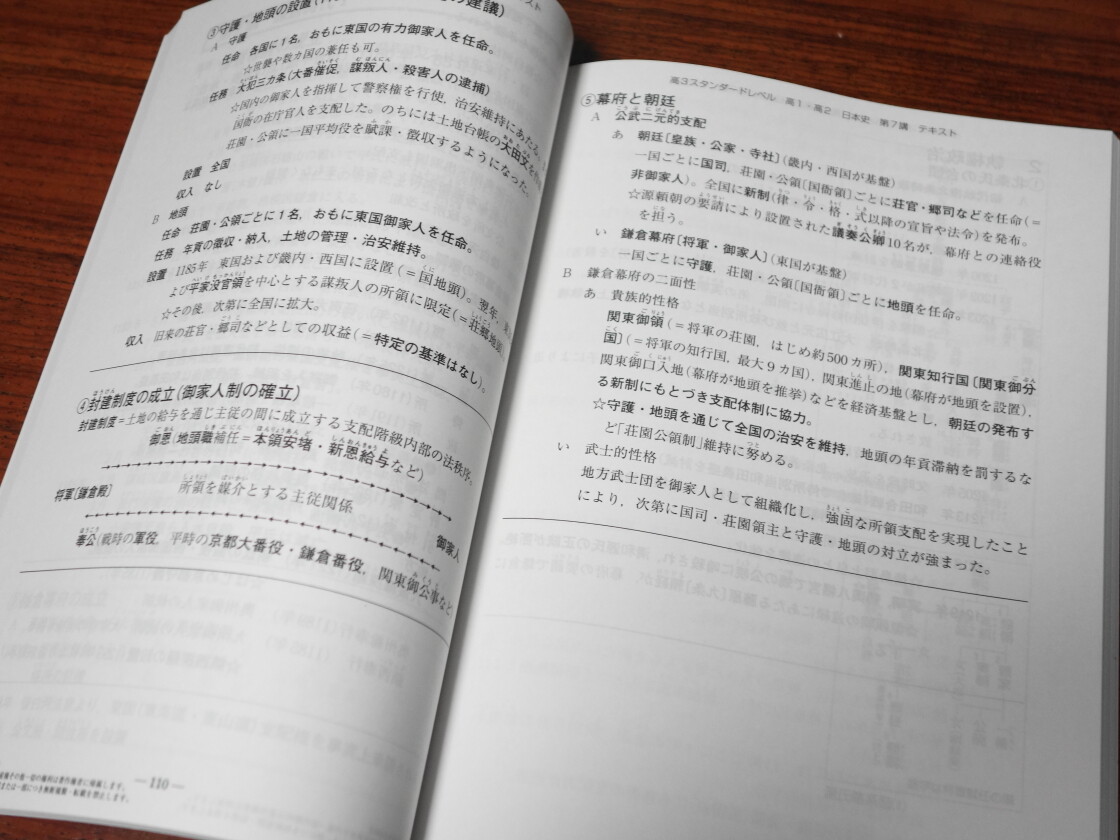 ③守護・地頭の設置
の建議)
キスト
A 守護
任命 各国に1名，おもに東国の有力御家人を任命。
☆世襲や数カ国の兼任も可。
任務 大犯三カ条(大番催促，謀叛人・殺害人の逮捕)
☆国内の御家人を指揮して警察権を行使，治安維持にあたる。
国衙の在庁官人を支配した。のちには土地台帳の大田文を
荘園・公領に一国平均役を賦課・徴収するようになった。
設置 全国
収入 なし
B 地頭
任命 荘園・公領ごとに1名，おもに東国御家人を任命。
任務 年貢の徴収・納入，土地の管理・治安維持。
設置 1185年 東国および畿内・西国に設置(＝国地頭)。翌年，
よび平家没官領を中心とする謀叛人の所領に限定(＝荘郷地頭)
☆その後，次第に全国に拡大。
収入 旧来の荘官・郷司などとしての収益(＝特定の基準はなし)。
④封建制度の成立(御家人制の確立)
封建制度＝土地の給与を通じ主従の間に成立する支配階級内部の法秩序。
御恩(地頭職補任＝本領安堵・新恩給与など)
将軍〔鎌倉殿〕 所領を媒介とする主従関係 御家人
奉公(戦時の軍役，平時の京都大番役・鎌倉番役，関東御公事など
―110―
高3スタンダードレベル 高1・高2 日本史 第7講 テキスト
⑤幕府と朝廷
A 公武二元的支配
あ 朝廷〔皇族・公家・寺社〕(畿内・西国が基盤)
一国ごとに国司，荘園・公領〔国衙領〕ごとに荘官・郷司などを任命(＝
非御家人)。全国に新制(律・令・格・式以降の宣旨や法令)を発布。
☆源頼朝の要請により設置された議奏公卿10名が，幕府との連絡役
を担う。
い 鎌倉幕府〔将軍・御家人〕(東国が基盤)
一国ごとに守護，荘園・公領〔国衙領〕ごとに地頭を任命。
B 鎌倉幕府の二面性
あ 貴族的性格
関東御領(＝将軍の荘園，はじめ約500カ所)，関東知行国〔関東御分
国〕(＝将軍の知行国，最大9カ国)，関東進止の地(幕府が地頭を設置)，
関東御口入地(幕府が地頭を推挙)などを経済基盤とし，朝廷の発布す
る新制にもとづき支配体制に協力。
☆守護・地頭を通じて全国の治安を維持，地頭の年貢滞納を罰するな
ど「荘園公領制」維持に努める。
い 武士的性格
地方武士団を御家人として組織化し，強固な所領支配を実現したこと
により，次第に国司・荘園領主と守護・地頭の対立が強まった。